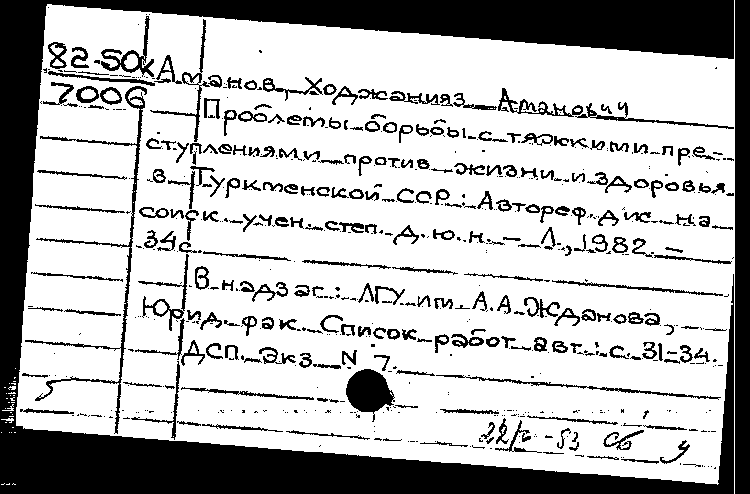 82-50к Аманов, Ходжанияз Аманович
7006
Проблемы борьбы с тяжкими пре-
ступлениями против жизни и здоровья
в Туркменской ССР: Автореф. дис. на
соиск. учен. степ. д.ю.н. – Л., 1982. –
34с.
В надзаг: ЛГУ им А.А. Жданова,
Юрид. фак. Список работ авт.: с. 31-34.
ДСП. Экз N 7.